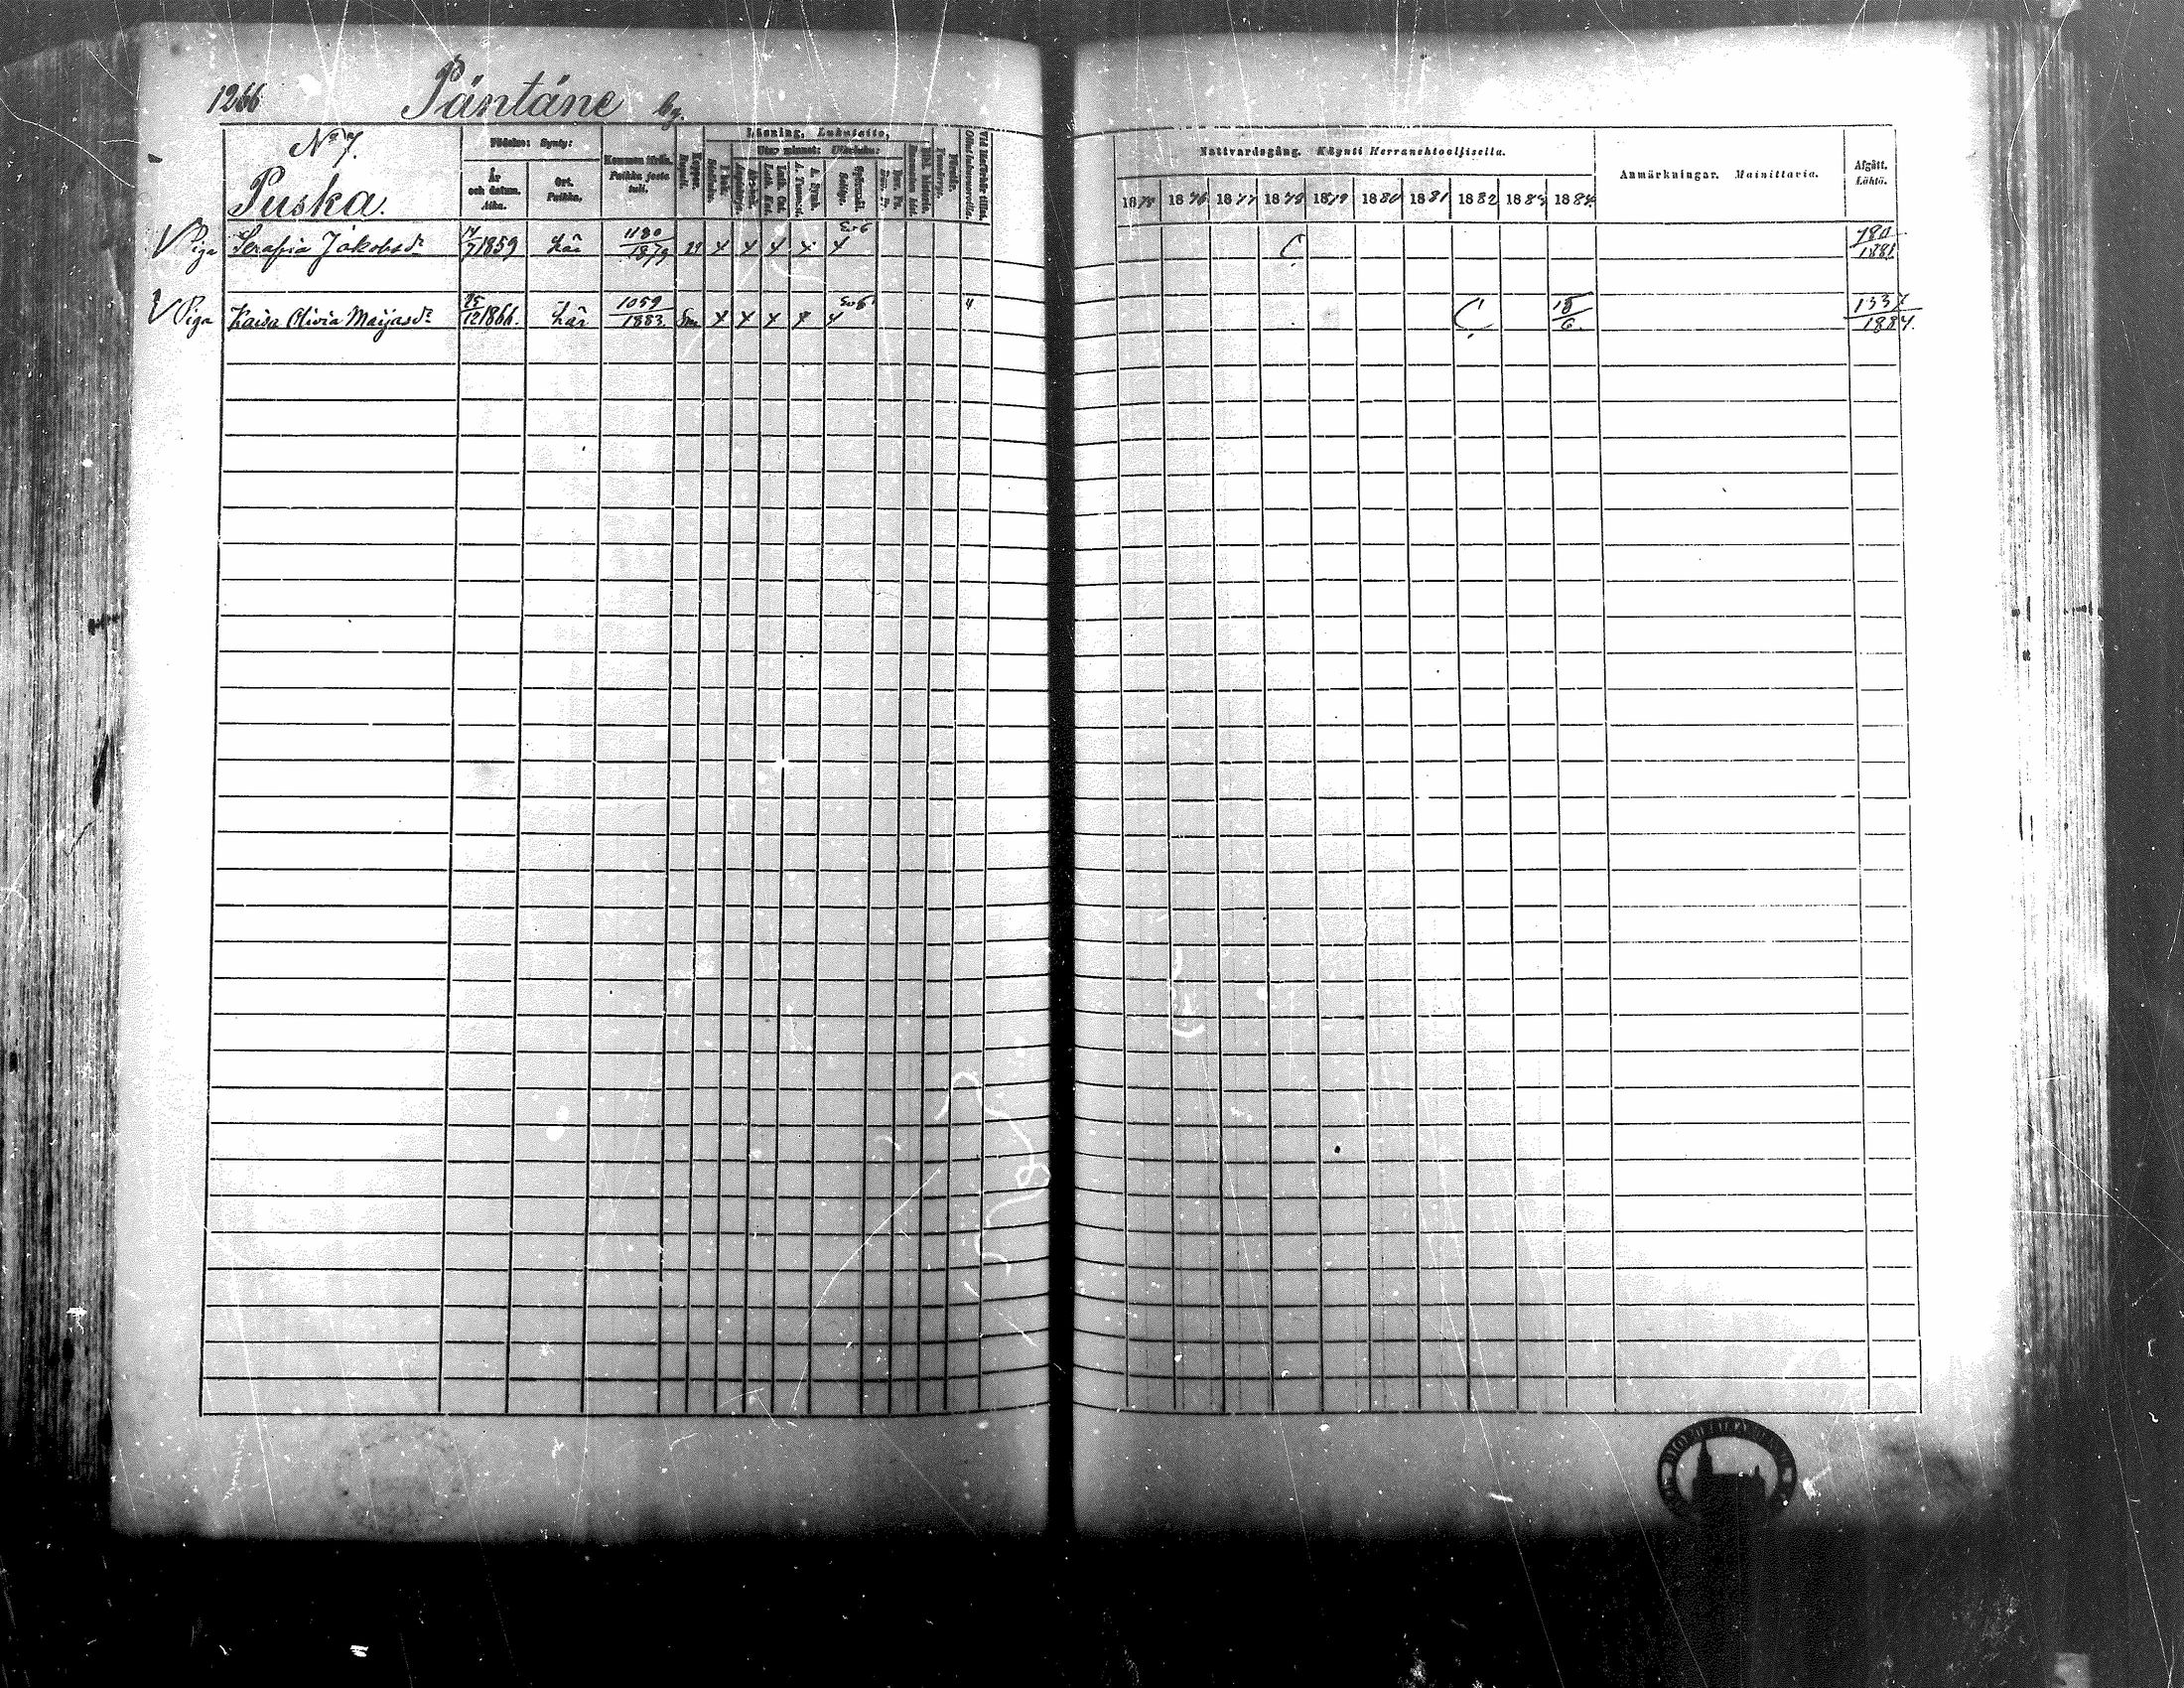 1266 Päntäne by.
No 7.
Puska.
Födelse: Synty:
År och datum. Aika.
Ort. Paikka.
Kommen ifrån. Paikka josta tuli.
Koppor. Rupuli.
Läsning, Lukutaito,
Utur minnet: Ulkoluku:
I bok. Sisäluku.
Nattvardsgång. Käynti Herranehtoollisella.
1875 1876 1877 1878 1879 1880 1881 1882 1883 1884
Anmärkningar. Mainittavia.
Afgått. Lähtö.
V Piga Serafia Jakobsdr 14/7 1859 här 1180/1879 x x x x x C 780/1881
V Piga Kaisa Olivia Maijasdr 25/12 1866. här 1059/1883 x x x x x " C 15/6. 1337/1884.